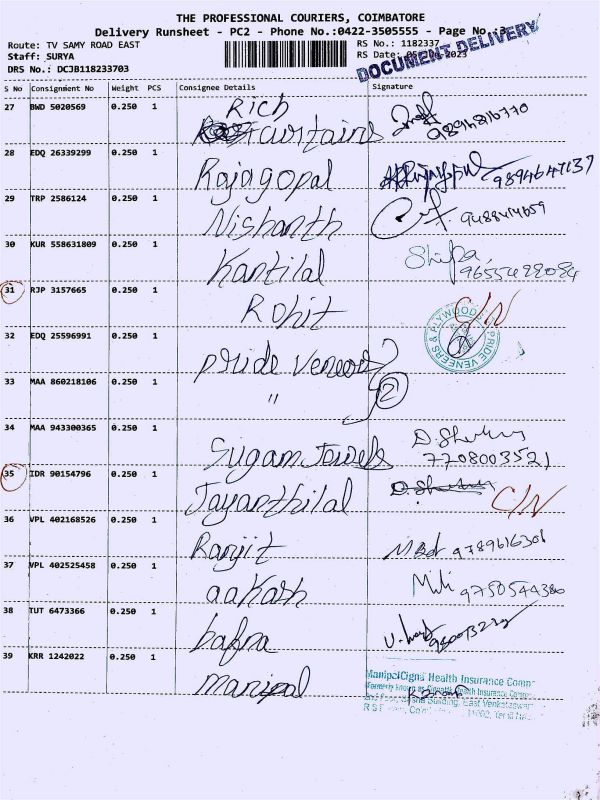 THE PROFESSIONAL COURIERS, COIMBATORE
Delivery Runsheet - PC2 - Phone No.:0422-3505555 - Page No.:3
Route: TV SAMY ROAD EAST RS No.: 1182337
Staff: SURYA RS Date:
DRS No.: DCJB118233703 DOCUMENT DELIVERY
S No Consignment No Weight PCS Consignee Details Signature
27 BWD 5020569 0.250 1 Rich
curtains
28 EDQ 26339299 0.250 1 Rajagopal
29 TRP 2586124 0.250 1 Nishanth
30 KUR 558631809 0.250 1 Kantilal Shilpa
31 RJP 3157665 0.250 1 Rohit C/N
32 EDQ 25596991 0.250 1 pride veneers
VENEERS & PLYWOODS PRIDE
33 MAA 860218106 0.250 1 " 2
34 MAA 943300365 0.250 1 Sugam Jewels
7708003521
35 IDR 90154796 0.250 1 Jayanthilal C/N
36 VPL 402168526 0.250 1 Ranjit 9789616301
37 VPL 402525458 0.250 1 aakash 9750544380
38 TUT 6473366 0.250 1 bafna
39 KRR 1242022 0.250 1 manipal
ManipalCigna Health Insurance Com
Formerly known as Health Insurance Com
Building, East Venkataswam
R S